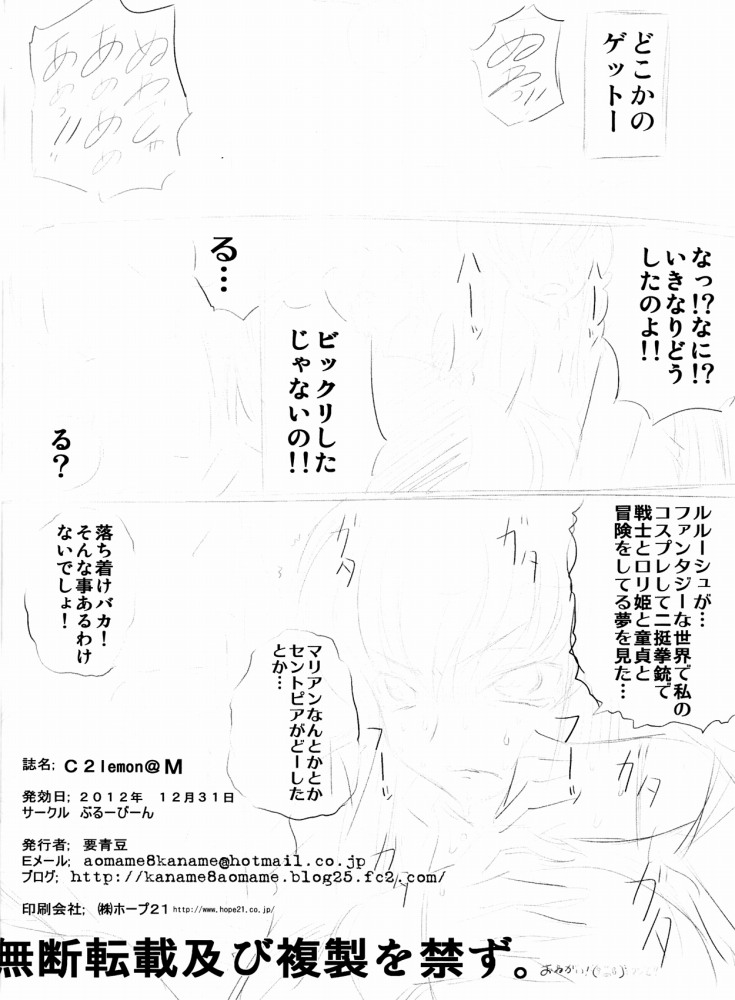 どこかの
ゲットー
ぬわっ!!
なっ!?なに!?
いきなりどう
したのよ!!
ビックリした
じゃないの!!
る…
る?
ルルーシュが…
ファンタジーな世界で私の
コスプレして二挺拳銃で
戦士とロリ姫と童貞と
冒険をしてる夢を見た…
ガタ
ガタ
ガタ
ガタ
マリアンなんとかとか
セントピアがどーした
とか…
落ち着けバカ!
そんな事あるわけ
ないでしょ!
誌名; C2lemon@M
発効日; 2012年 12月31日
サークル ぶるーびーん
発行者; 要青豆
Eメール; aomame8kaname@hotmail.co.jp
ブログ; http://kaname8aomame.blog25.fc2.com/
印刷会社; ㈱ホープ21 http://www.hope21.co.jp/
無断転載及び複製を禁ず。